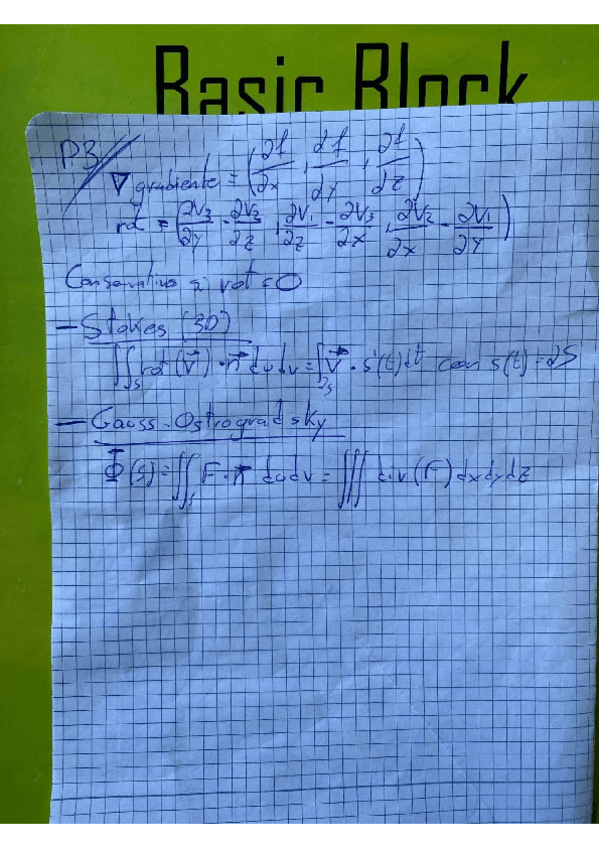 Basic Block
P3
∇ gradiente = (∂f/∂x, ∂f/∂y, ∂f/∂z)
rot = (∂V₃/∂y - ∂V₂/∂z, ∂V₁/∂z - ∂V₃/∂x, ∂V₂/∂x - ∂V₁/∂y)
Conservativo si rot = 0
- Stokes (3D)
∬ₛ rot (V⃗) · n⃗ dudv = ∫∂s V⃗ · s'(t) dt con s(t) = ∂S
- Gauss-Ostrogradsky
Φ(S) = ∬ₛ F · n⃗ dudv = ∭ div (F) dxdydz